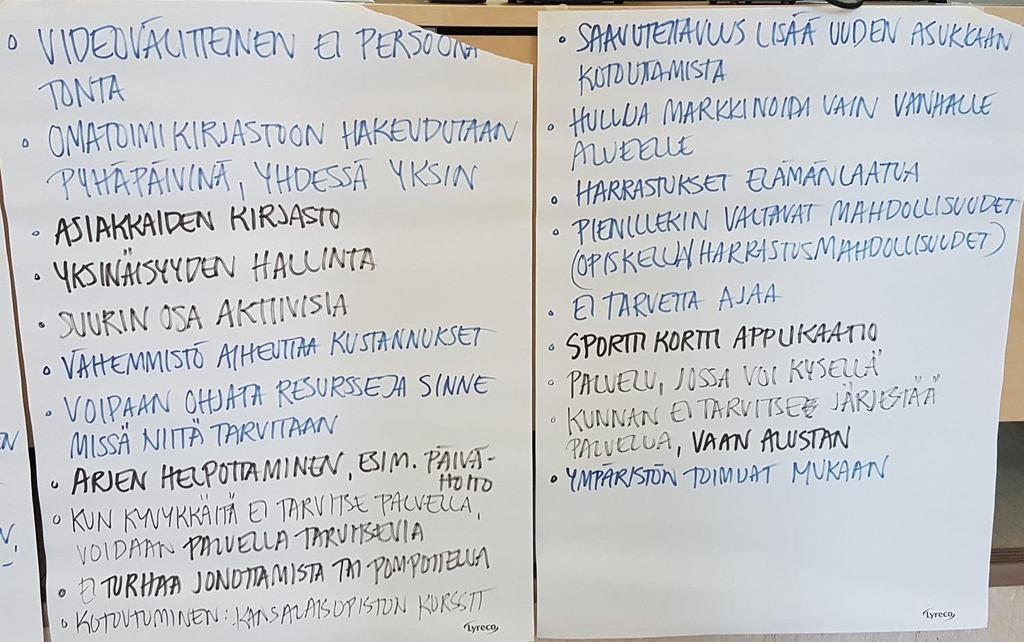 • VIDEOVÄLITTEINEN EI PERSOONA
TONTA
• OMATOIMIKIRJASTOON HAKEUDUTAAN
PYHÄPÄIVINÄ, YHDESSÄ YKSIN
• ASIAKKAIDEN KIRJASTO
• YKSINÄISYYDEN HALLINTA
• SUURIN OSA AKTIIVISIA
• VÄHEMMISTÖ AIHEUTTAA KUSTANNUKSET
• VOIDAAN OHJATA RESURSSEJA SINNE
MISSÄ NIITÄ TARVITAAN
• ARJEN HELPOTTAMINEN, ESIM. PÄIVÄ-
HOITO
• KUN KYVYKKÄITÄ EI TARVITSE PALVELLA,
VOIDAAN PALVELLA TARVITSEVIA
• EI TURHAA JONOTTAMISTA TAI POMPOTTELUA
• KOTOUTUMINEN: KANSALAISOPISTON KURSSIT
Lyreco
• SAAVUTETTAVUUS LISÄÄ UUDEN ASUKKAAN
KOTOUTTAMISTA
• HULLUA MARKKINOIDA VAIN VANHALLE
ALUEELLE
• HARRASTUKSET ELÄMÄNLAATUA
• PIENILLEKIN VALTAVAT MAHDOLLISUUDET
(OPISKELU/HARRASTUSMAHDOLLISUUDET)
• EI TARVETTA AJAA
• SPORTTI KORTTI APPLIKAATIO
• PALVELU, JOSSA VOI KYSELLÄ
• KUNNAN EI TARVITSE JÄRJESTÄÄ
PALVELUA, VAAN ALUSTAN
• YMPÄRISTÖN TOIMIJAT MUKAAN
Lyreco